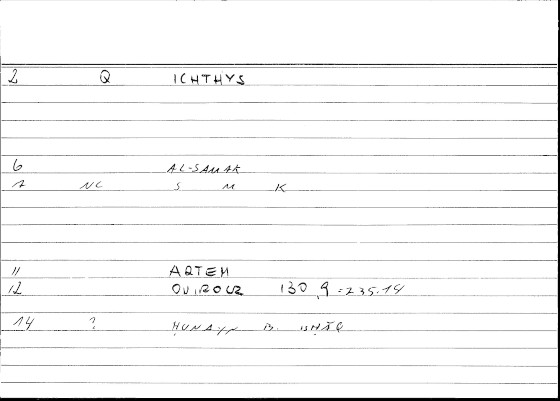 2 Q ICHTHYS
6 AL-SAMAK
1 NC S M K
11 ARTEM
12 OVIROUR 130,9 = 235.14
14 ? ḤUNAYN B. ISḤĀQ